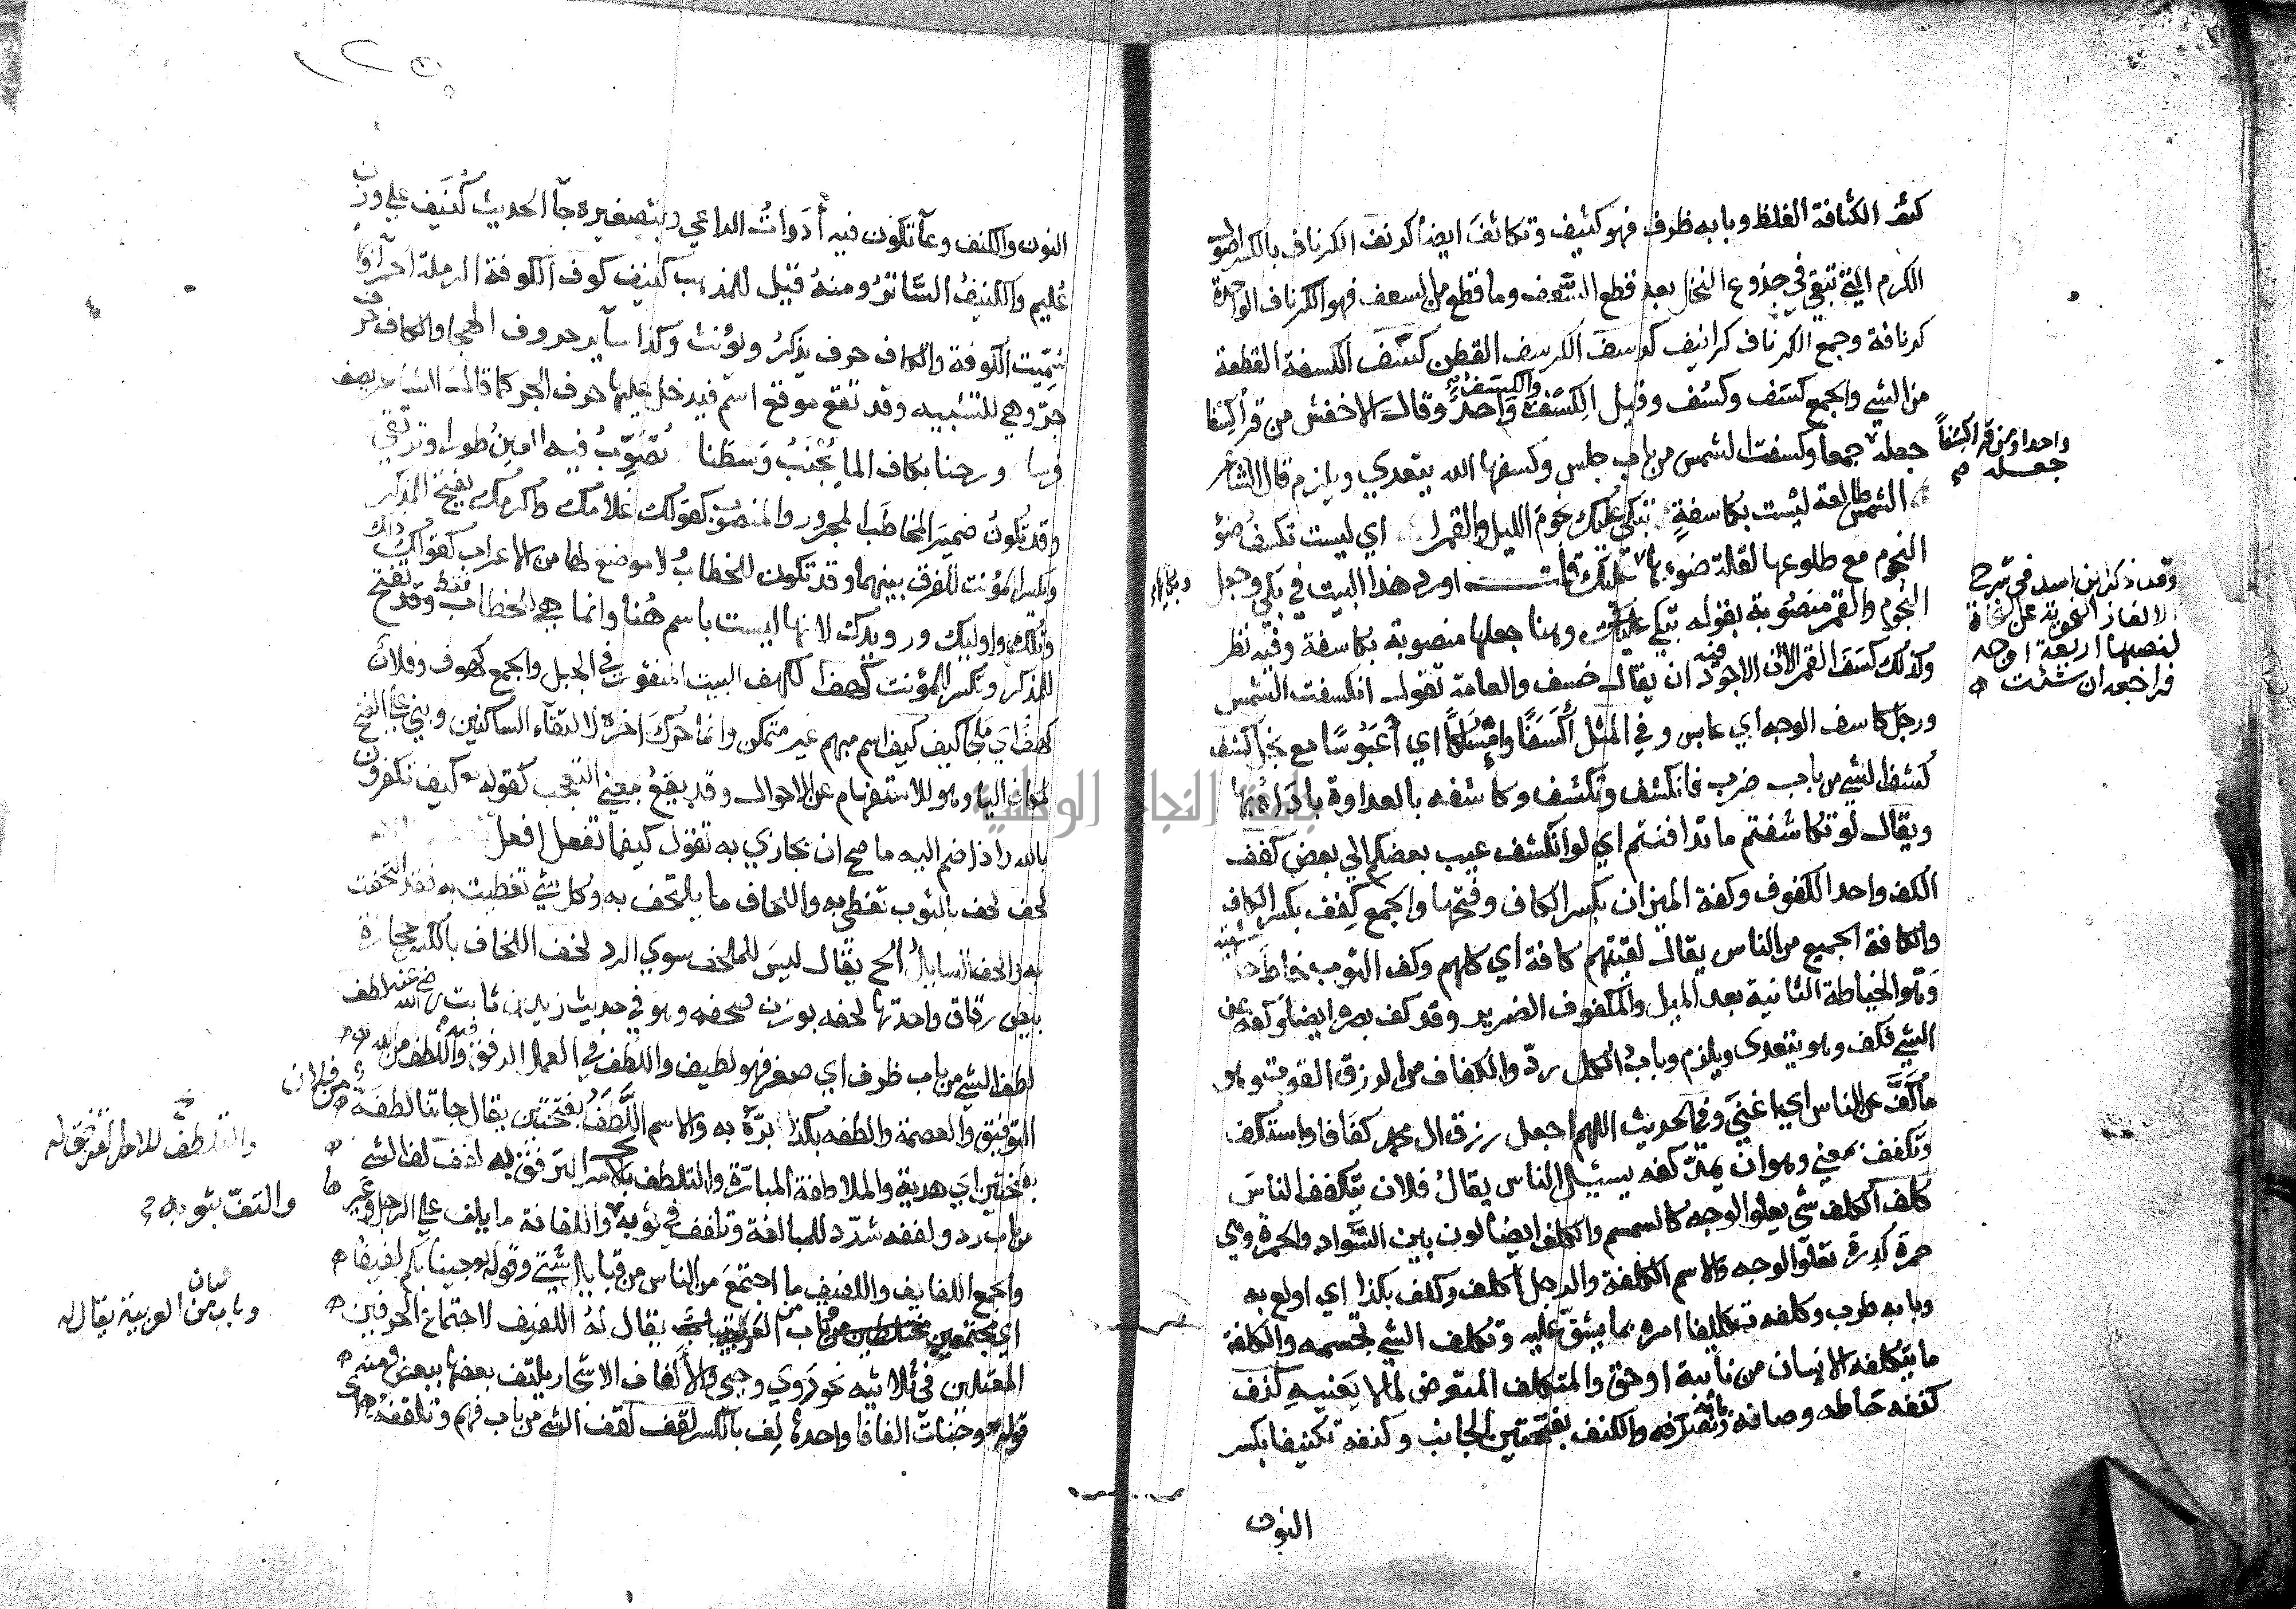 كثف الكثافة الغلظ وبابه ظرف فهو كثيف وتكاثف ايضا كرنف الكرناف بالكسر اصول
الكرم التي تبقي في جذوع النخل بعد قطع السعف وما قطع من السعف فهو الكرناف الواحدة
كرنافة وجمع الكرناف كرانيف كرسف الكرسف القطن كسف الكسفة القطعة
من الشيء والجمع كسف وكسف وقيل الكسف والكسفة واحد وقال الاخفش من قرأ كسفا
واحدا ومن قرا كسفاً
جعله
جعله جمعا وكسفت الشمس من باب جلس وكسفها الله يتعدي ويلزم قال الشاعر
الشمس طالعة ليست بكاسفةٍ تبكي عليك نجوم الليل والقمرا اي ليست تكسف ضوء
النجوم مع طلوعها لقلة ضوءها عليك قلت اورد هذا البيت في بكي وجعل
النجوم والقمر منصوبة بقوله تبكي عليك وهنا جعلها منصوبة بكاسفة وفيه نظر
وقد ذكر ابن اسد في شرح
الالغاز النحوية عن
لنصبها اربعة اوجه
فراجعه ان شئت
وكذلك كسف القمر الا ان الاجود فيه ان يقال خسف والعامة تقول انكسفت الشمس
ورجل كاسف الوجه اي عابس وفي المثل أكسفا وامساكا اي أعبوسا مع بخل كشف
كشف الشيء من باب ضرب فانكشف وتكشف وكاشفه بالعداوة باداه بها
ويقال لو تكاشفتم ما تدافنتم اي لو انكشف عيب بعضكم الي بعض كفف
الكف واحد الكفوف وكفة الميزان بكسر الكاف وفتحها والجمع كفف بكسر الكاف
والكافة الجميع من الناس يقال لقيتهم كافة اي كلهم وكف الثوب خاط حاشيته
وهو الخياطة الثانية بعد المبل والمكفوف الضرير وقد كف بصره ايضا وكفه عن
الشيء فكف وهو يتعدى ويلزم وباب الكل ردّ والكفاف من الرزق القوت وهو
ما كفَّ عن الناس اي اغنى وفي الحديث اللهم اجعل رزق ال محمد كفافا واستكف
وتكفف بمعني وهو ان يمدّ كفه يسئل الناس يقال فلان يتكفف الناس
كلف الكلف شي يعلو الوجه كالسمسم والكلف ايضا لون بين السواد والحمرة وهي
حمرة كدرة تعلو الوجه والاسم الكلفة والرجل اكلف وكلف بكذا اي اولع به
وبابه طرب وكلفه تكليفا امره بما يشق عليه وتكلف الشي تجشمه والكلفة
ما يتكلفه الانسان من نائبة او حق والمتكلف المتعرض لما لا يعنيه كنف
كنفه حاطه وصانه وبابه نصر والكنف بفتحتين الجانب وكنفه تكنيفا بكسر
النون
النون والكنف وعآ تكون فيه أدوات الراعي وبتصغيره جآ الحديث كُنَيف علي وزن
عُليم والكنيف الساتر ومنه قيل للمذهب كنيف كوف الكوفة الرملة الحرآ وبها
سُمّيت الكوفة والكاف حرف يذكر ويؤنث وكذا ساير حروف الهجا والكاف حرف
جرّ وهي للتشبيه وقد تقع موقع اسم فيدخل عليها حرف الجر كما قال الشاعر يصف
فرسا ورحنا بكاف الما يجنب وسطنا تصوب فيه العين طورا وترتقي
وقد تكون ضمير المخاطب المجرور والمنصوب كقولك غلامك واكرمك بفتح المذكر
وبكسر المؤنث للفرق بينهما وقد تكون للخطاب لا موضع لها من الاعراب كقولك ذاك
وتلك واوليك ورويدك لانها ليست باسم هنا وانما هي للخطاب فقط وقد تفتح
للمذكر وتكسر للمؤنث كهف الكهف البيت المنقور في الجبل والجمع كهوف وفلان
كهف اي ملجا كيف كيف اسم مبهم غير متمكن وانما حرك اخره لالتقآء الساكنين وبني علي الفتح
لمكان اليا وهو للاستفهام عن الاحوال وقد يقع بمعني التعجب كقوله كيف تكفرون
بالله واذا ضم اليه ما صح ان يجازي به تقول كيفما تفعل افعل
لحف لحف بالثوب تغطي به واللحاف ما يلتحف به وكل شي تغطيت به فقد التحفت
به والحف السايل الح يقال ليس للملحف سوي الرد لخف اللخاف بالكسر حجارة
بيض رقاق واحدتها لخفه بوزن صحفه وهو في حديث زيد بن ثابت رضي الله عنه لطف
لطف الشي من باب ظرف اي صغر فهو لطيف واللطف في العمل الرفق فيه واللطف من الله
التوفيق والعصمة والطفه بكذا برّه به والاسم اللَّطَف بفتحتين يقال جاتنا لطفة من فلان
بفتحتين اي هدية والملاطفة المبارّة والتلطف للامر الترفق له لفف لف الشي
والتلطف للامر الترفق له
من باب رد ولففه شدّد للمبالغة وتلفف في ثوبه واللفافة ما يلف علي الرجل وغيرها
والتفّ بثوبه
والجمع اللفايف واللفيف ما اجتمع من الناس من قبايل شتي وقوله جينا بكم لفيفا
اي مجتمعين مختلطين من باب من العربية يقال له اللفيف لاجتماع الحرفين
وباب من العربية يقال له
المعتلين في ثلاثيه نحو ذوي وحيي والألفاف الاشجار يلتف بعضها ببعض ومنه
قوله وجنات الفافا واحدها لِف بالكسر لقف لقف الشي من باب فهم وتلقفه